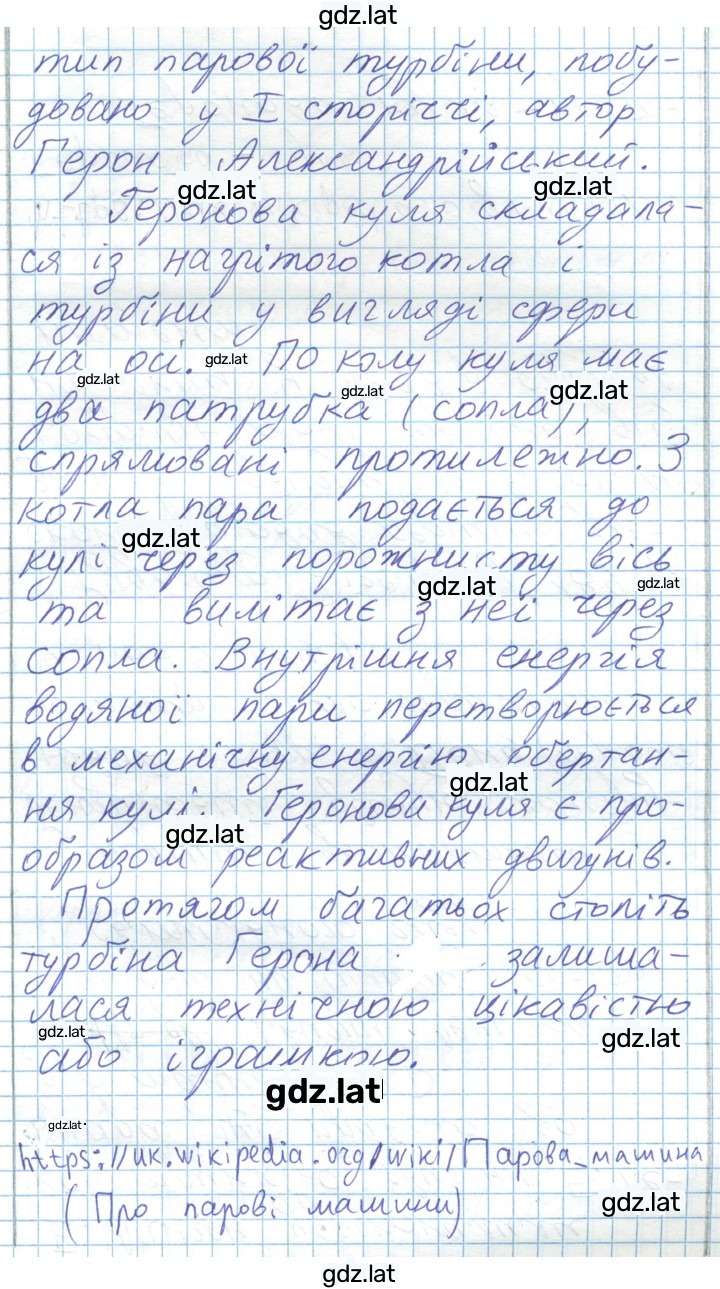 gdz.lat
тип парової турбіни, побу-
довано у I сторіччі, автор
Герон Александрійський.
gdz.lat
gdz.lat
Геронова куля складала-
ся із нагрітого котла і
турбіни у вигляді сфери
на осі. По колу куля має
gdz.lat
gdz.lat
gdz.lat
gdz.lat
два патрубка (сопла),
спрямовані протилежно. З
котла пара подається до
gdz.lat
кулі через порожнисту вісь
gdz.lat
gdz.lat
та вилітає з неї через
сопла. Внутрішня енергія
водяної пари перетворюється
в механічну енергію обертан-
gdz.lat
ня кулі. Геронова куля є про-
gdz.lat
образом реактивних двигунів.
Протягом багатьох століть
турбіна Герона залиша-
лася технічною цікавістю
gdz.lat
gdz.lat
або іграшкою.
gdz.lat
gdz.lat
https://uk.wikipedia.org/wiki/Парова_машина
(Про парові машини)
gdz.lat
gdz.lat